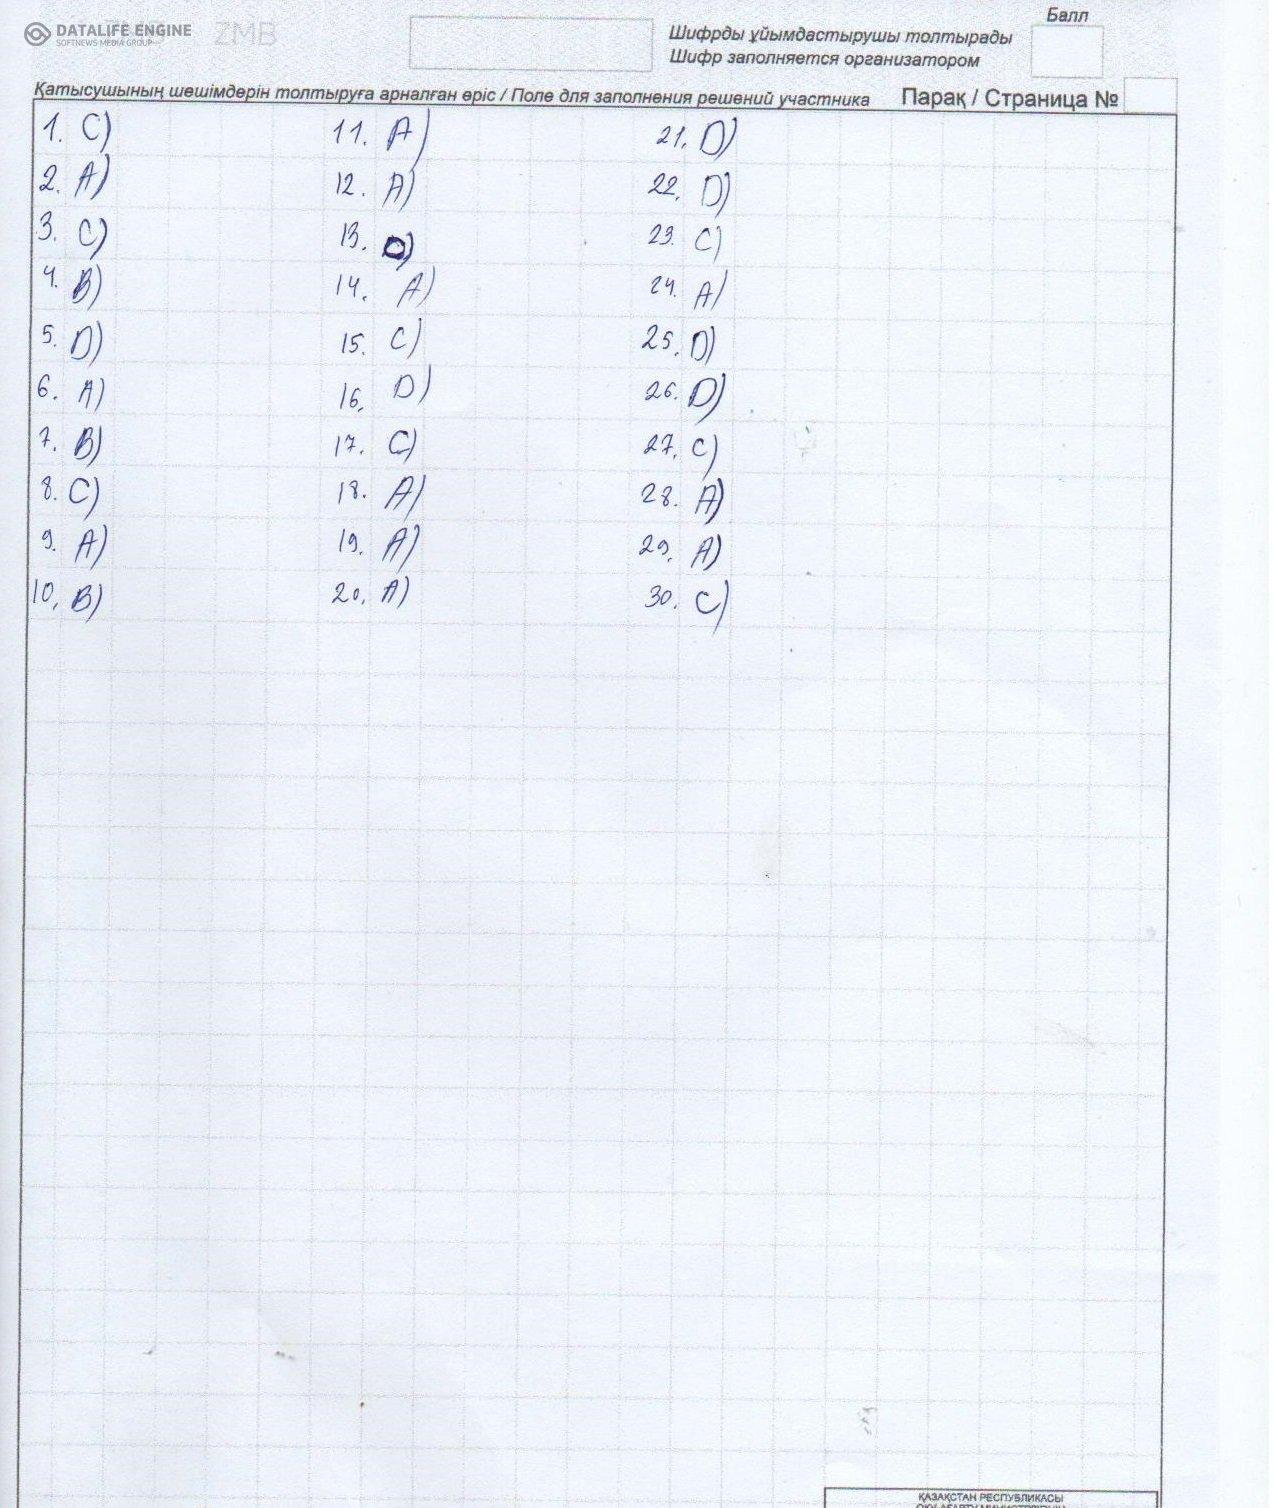 DATALIFE ENGINE
SOFTNEWS MEDIA GROUP
ZMB
Балл
Шифрды ұйымдастырушы толтырады
Шифр заполняется организатором
Қатысушының шешімдерін толтыруға арналған өріс / Поле для заполнения решений участника
Парақ / Страница №
1. C)
2. A)
3. C)
4. B)
5. D)
6. A)
7. B)
8. C)
9. A)
10. B)
11. A)
12. A)
13. D)
14. A)
15. C)
16. D)
17. C)
18. A)
19. A)
20. A)
21. D)
22. D)
23. C)
24. A)
25. D)
26. D)
27. C)
28. A)
29. A)
30. C)
ҚАЗАҚСТАН РЕСПУБЛИКАСЫ